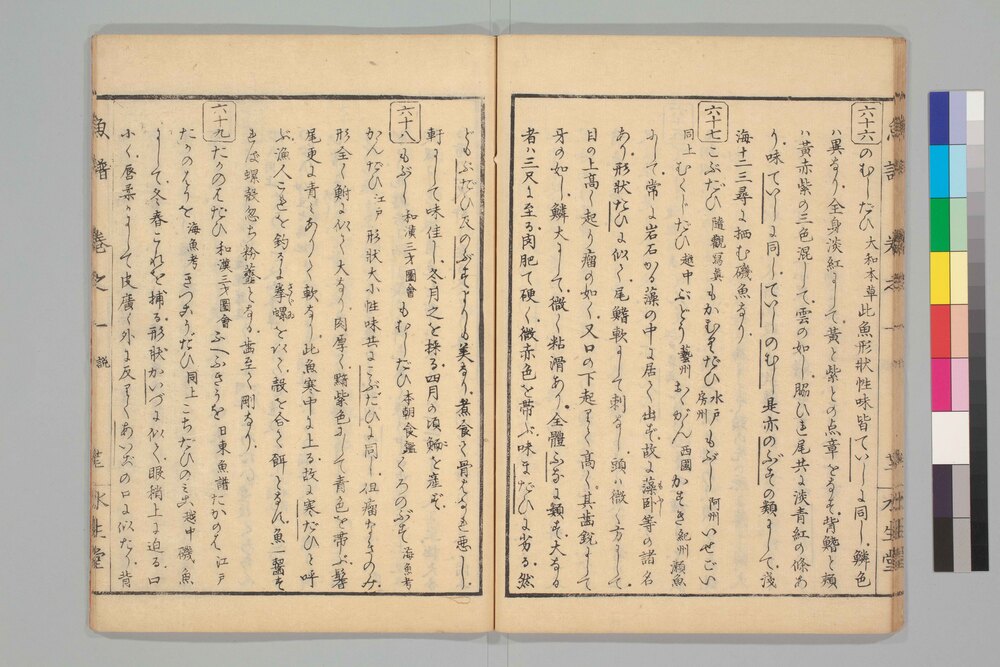 六十六
のむしだひ 大和本草 此魚形状性味皆ていしに同し鱗色
ハ異なり全身淡紅にして黄と紫との点章をなす背鰭と頬
ハ黄赤紫の三色混して雲の如し脇ひれ尾共に淡青紅の條あ
り味ていしに同していしのむし是亦のぶすの類にして浅
海十二三尋に栖む磯魚なり
六十七
こぶだひ 隨觀寫真 もかむすだひ 水戸 もぶし 阿州 いせごい 房州
同上 むくじだひ 越中 ぶどう 藝州 あくがん 西國 かすぎ 紀州 瀬魚
にして常に岩石かる藻の中に居て出す故に藻卧等の諸名
あり形状だひに似て尾鰭軟にして刺なし頭ハ微く方にして
目の上高く起り瘤の如く又口の下起りて高く其歯鋭にして
牙の如し鱗大にして微く粘滑あり全體ふなに類す大なる
者ハ三尺に至る肉肥て硬く微赤色を帯ぶ味まだひに劣る然
どもぶだひ及のぶすよりも美なり煮食て骨もなる悪し
軒にして味佳し冬月之を採る四月の頃鰤を産ず
六十八
もぶし 和漢三才圖會 もむしだひ 本朝食鑑 くろのぶす 海魚考
かんだひ 江戸 形状大小性味共にこぶだひに同し但瘤なきのみ
形全く鮒に似て大なり肉厚く黯紫色にして青色を帯ぶ鬐
尾更に青くありて軟なり此魚寒中に上る故に寒だひと呼
ぶ漁人これを釣るに拳螺を以て殻を合て餌となす魚一齧す
れば螺殻忽ち粉韲となる歯至て剛なり
六十九
たかのはだひ 和漢三才圖會 ふへふきうを 日東魚譜 たかのは 江戸
たかのはうを 海魚考 きつこうだひ 同上 こちだひのえぶ 越中 磯魚
にして冬春これを捕る形状かいづに似て眼稍上に迫る口
小く唇柔にして皮廣く外に反りてあいおの口に似たり背
魚譜 巻之一 説
水生堂